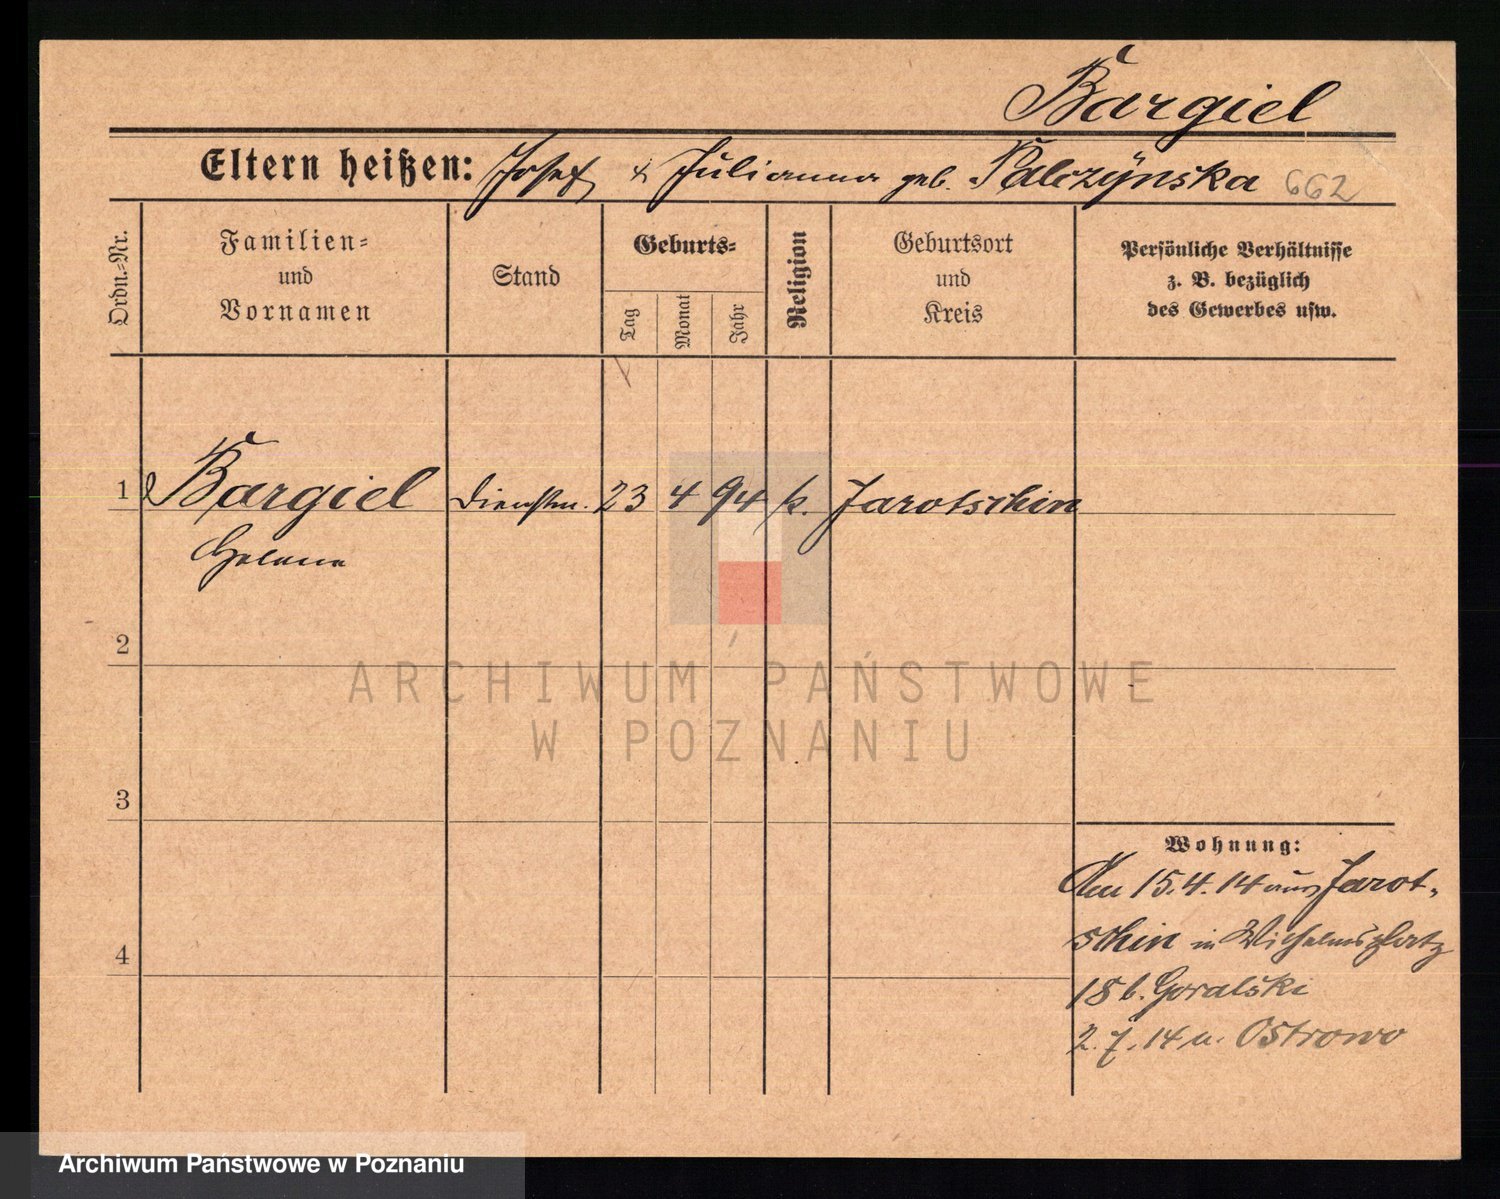 Bargiel
Eltern heißen: Josef & Julianna geb. Palczynska 662
Ordn.-Nr.
Familien-
und
Vornamen
Stand
Geburts-
Tag
Monat
Jahr
Religion
Geburtsort
und
Kreis
Persönliche Verhältnisse
z. B. bezüglich
des Gewerbes usw.
1 Bargiel Dienstm. 23 4 94 k. Jarotschin
Helene
2
3
4
Wohnung:
Am 15.4.14 aus Jarot-
schin in Wilhelmsplatz
18 b. Goralski
2.7.14 n. Ostrowo
ARCHIWUM PAŃSTWOWE
W POZNANIU
Archiwum Państwowe w Poznaniu